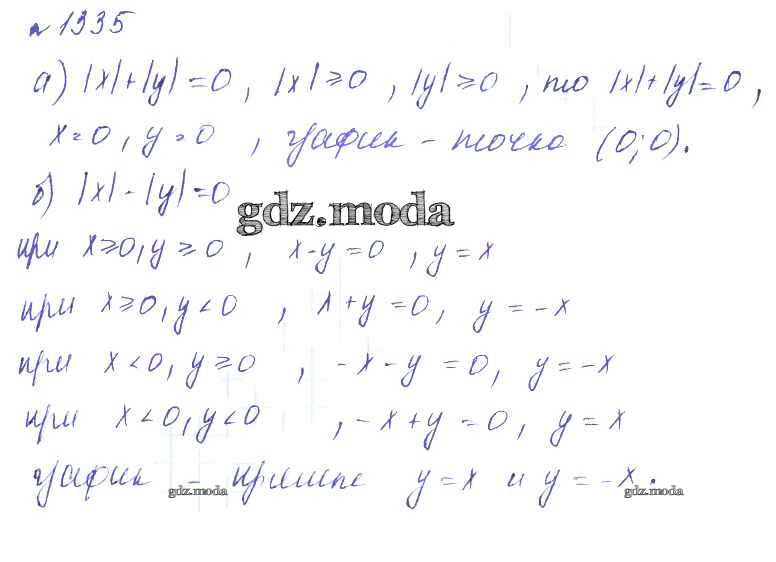 № 1335
а) |x|+|y|=0, |x|≥0, |y|≥0, то |x|+|y|=0,
x=0, y=0, график - точка (0;0).
б) |x|-|y|=0
gdz.moda
при x≥0, y≥0, x-y=0, y=x
при x≥0, y<0, x+y=0, y=-x
при x<0, y≥0, -x-y=0, y=-x
при x<0, y<0, -x+y=0, y=x
график - прямые y=x и y=-x.
gdz.moda gdz.moda